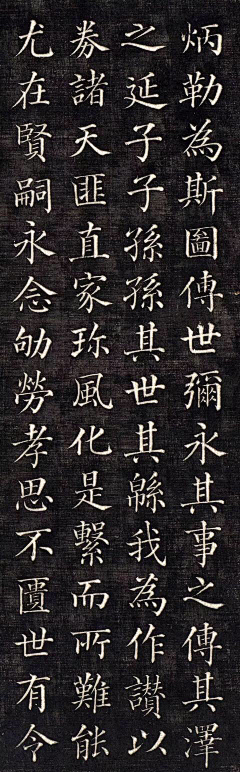 炳勒為斯圗傳世彌永其事之傳其澤
之延子子孫孫其世其緜我為作讃以
劵諸天匪直家珎風化是繫而所難能
尤在賢嗣永念劬勞孝思不匱世有令